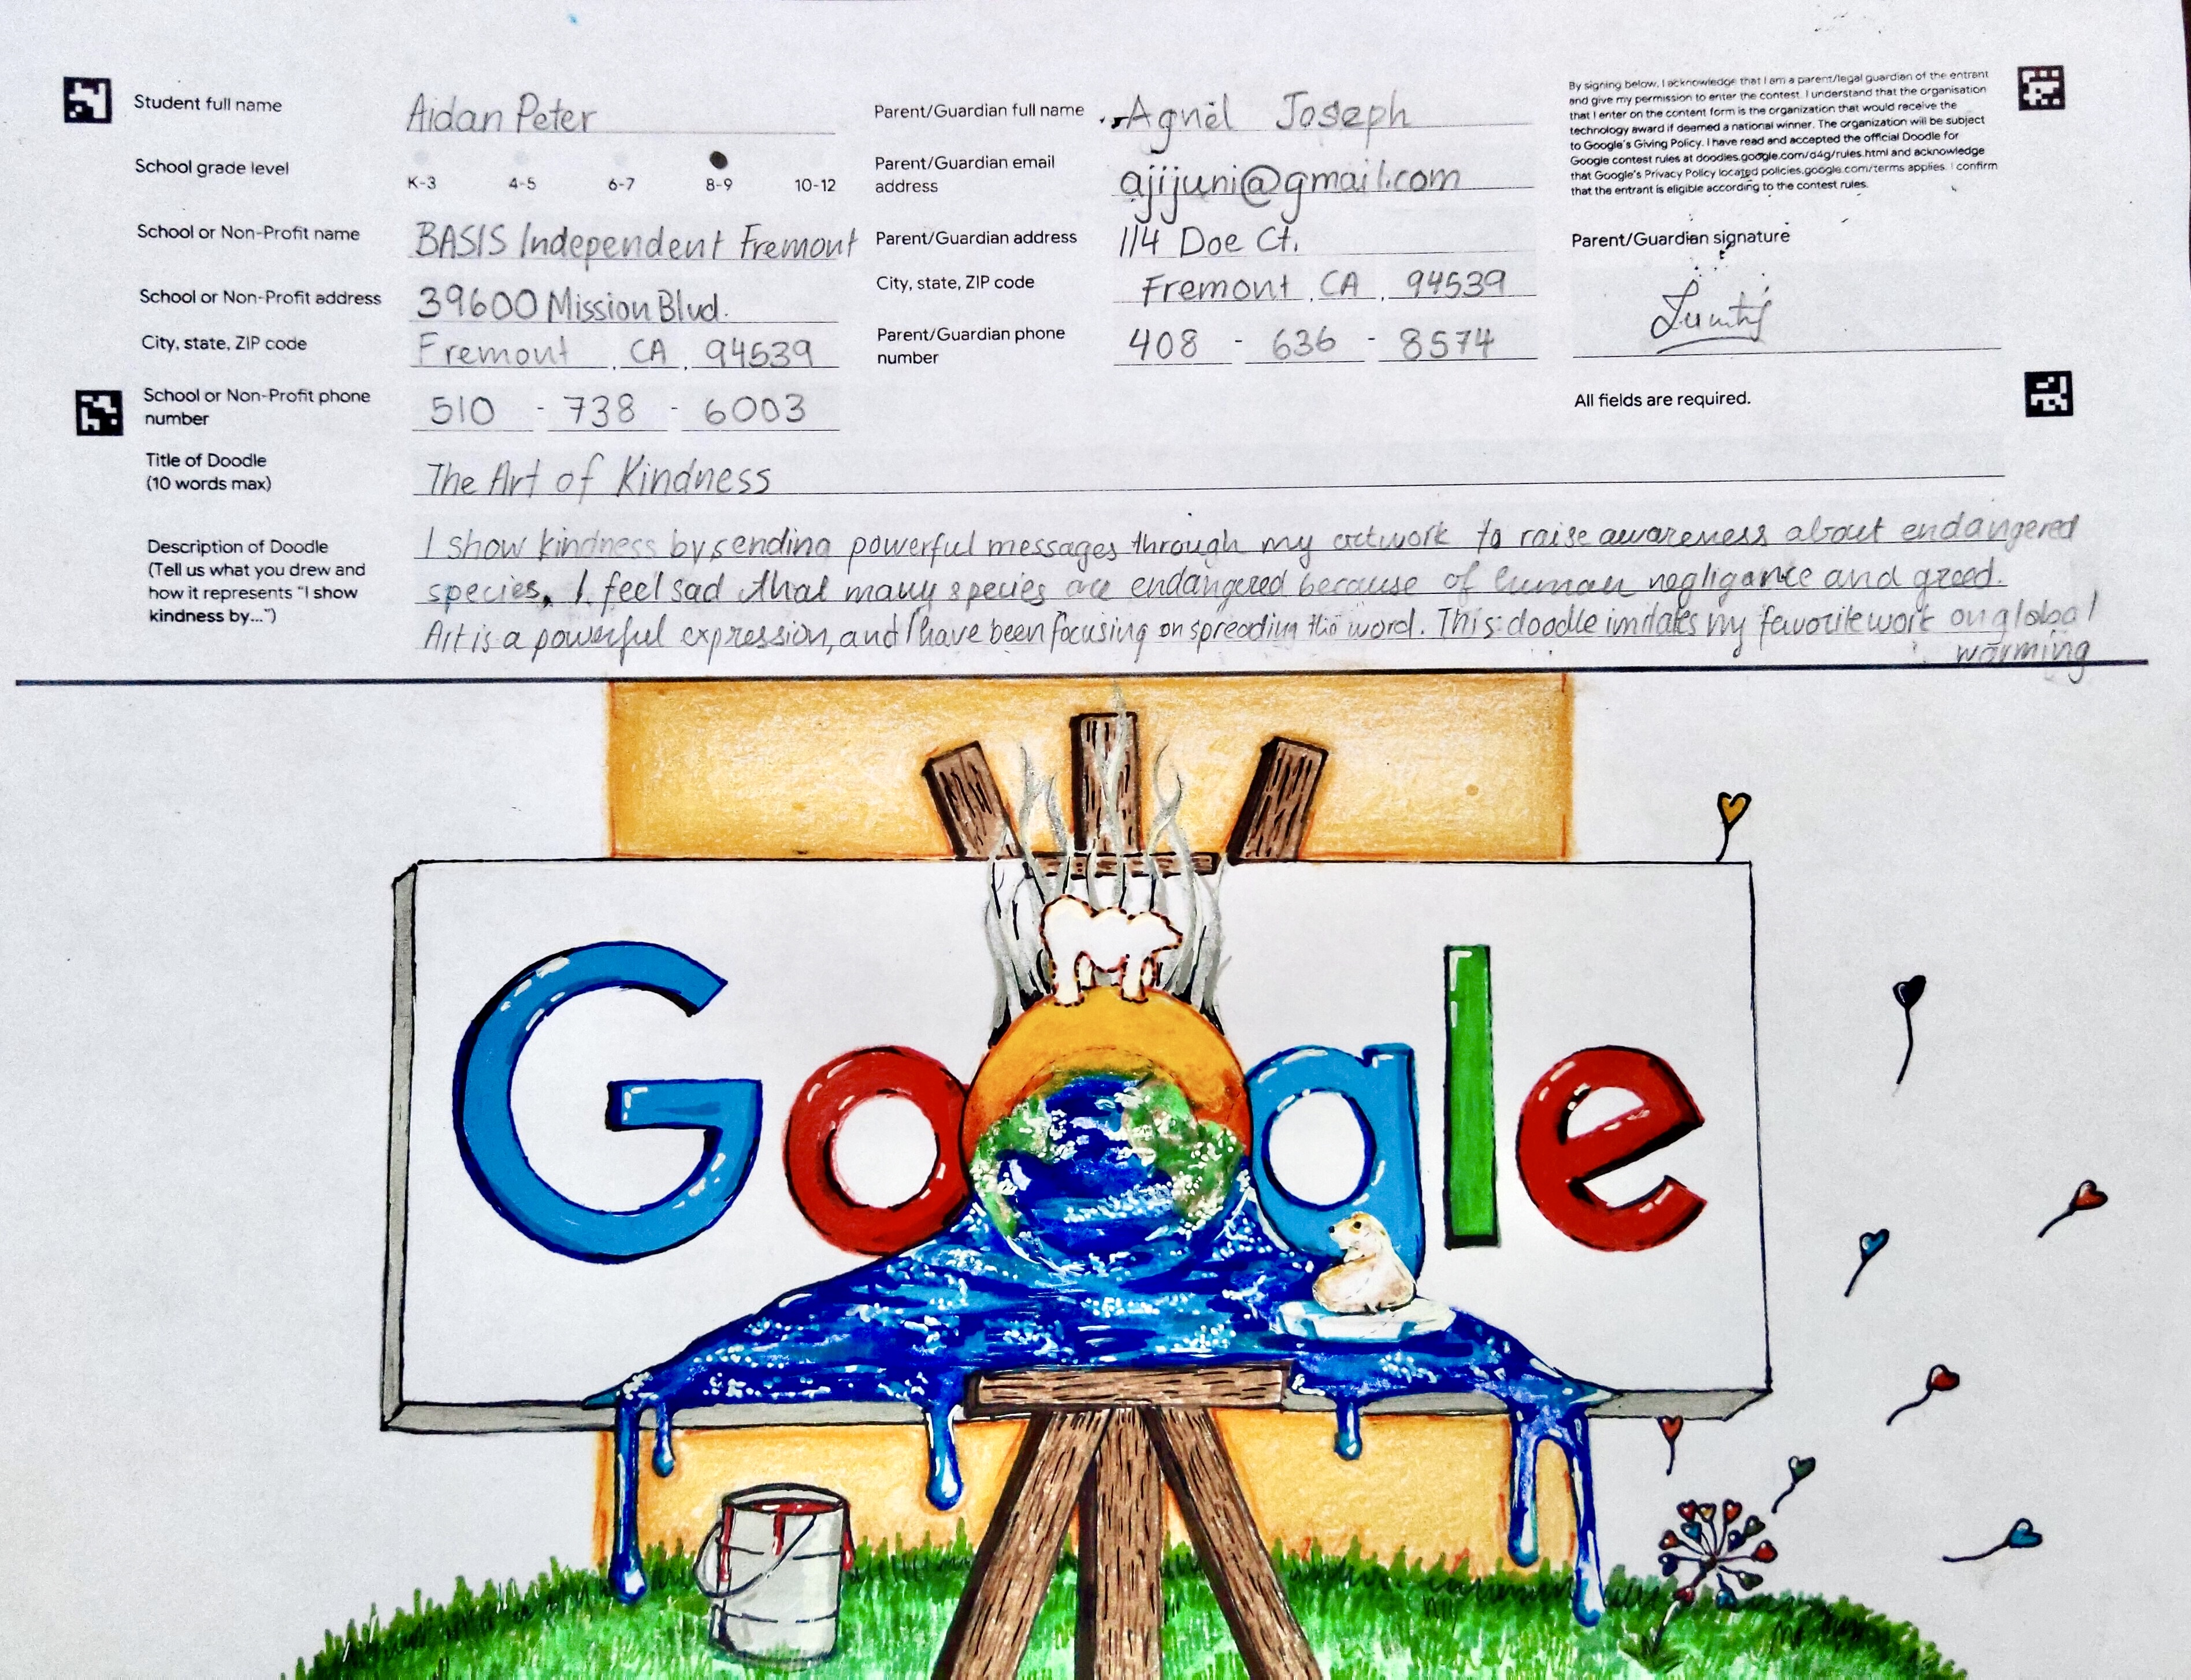 Student full name Aidan Peter
School grade level
K-3 4-5 6-7 8-9 10-12
School or Non-Profit name BASIS Independent Fremont
School or Non-Profit address 39600 Mission Blvd.
City, state, ZIP code Fremont , CA , 94539
School or Non-Profit phone
number 510 - 738 - 6003
Parent/Guardian full name Agnel Joseph
Parent/Guardian email
address ajijuni@gmail.com
Parent/Guardian address 114 Doe Ct.
City, state, ZIP code Fremont , CA , 94539
Parent/Guardian phone
number 408 - 636 - 8574
By signing below, I acknowledge that I am a parent/legal guardian of the entrant
and give my permission to enter the contest. I understand that the organisation
that I enter on the content form is the organization that would receive the
technology award if deemed a national winner. The organization will be subject
to Google's Giving Policy. I have read and accepted the official Doodle for
Google contest rules at doodles.google.com/d4g/rules.html and acknowledge
that Google's Privacy Policy located policies.google.com/terms applies. I confirm
that the entrant is eligible according to the contest rules.
Parent/Guardian signature
All fields are required.
Title of Doodle
(10 words max) The Art of Kindness
Description of Doodle
(Tell us what you drew and
how it represents "I show
kindness by...")
I show kindness by sending powerful messages through my artwork to raise awareness about endangered
species. I feel sad that many species are endangered because of human negligance and greed.
Art is a powerful expression, and I have been focusing on spreading the word. This doodle imitates my favorite work on global
warming
Google